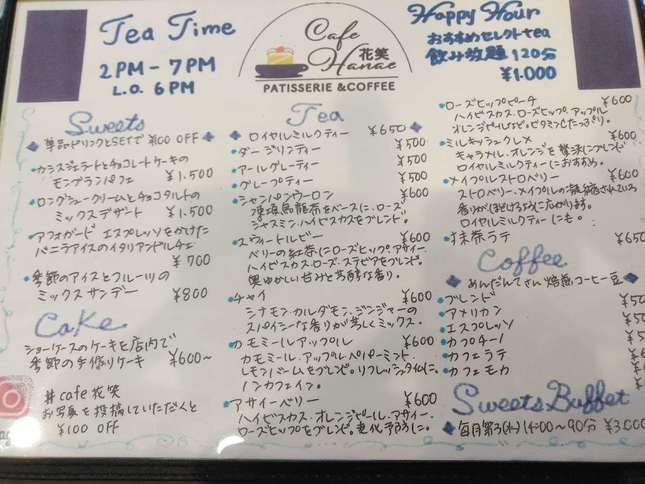 Tea Time
2PM-7PM
L.O. 6PM
Cafe
花笑
Hanae
PATISSERIE & COFFEE
Happy Hour
おすすめセレクトtea
飲み放題 120分
¥1.000
Sweets
SETで ¥100 OFF
カシスジェラートとチョコレートケーキの
モンブランパフェ ¥1.500
ロングシュークリームとチョコタルトの
ミックスデザート ¥1.500
アフォガード エスプレッソをかけた
バニラアイスのイタリアンドルチェ
¥700
季節のアイスとフルーツの
ミックスサンデー ¥800
Cake
ショーケースのケーキを店内で
季節の手作りケーキ ¥600~
#cafe花笑
お写真を投稿していただくと
¥100 OFF
Tea
ロイヤルミルクティー ¥650
ダージリンティー ¥500
アールグレーティー ¥500
グレープティー ¥500
シャンパンウーロン ¥600
凍頂烏龍茶をベースに、ローズ
ジャスミン、ハイビスカスをブレンド。
スウィートルビー ¥600
ベリーの紅茶にローズヒップ、アサイー、
ハイビスカス、ローズ、ステビアをブレンド。
奥ゆかしい甘みと芳醇な香り。
チャイ ¥600
シナモン・カルダモン・ジンジャーの
スパイシーな香りが芳しくミックス。
カモミールアップル ¥600
カモミール、アップル、ペパーミント、
レモンバームをブレンド。リフレッシュタイムに。
ノンカフェイン。
アサイーベリー ¥600
ハイビスカス、オレンジピール、アサイー、
ローズヒップをブレンド。老化予防に。
ローズヒップピーチ ¥600
ハイビスカス、ローズヒップ、アップル
オレンジピールなど。ビタミンCたっぷり。
ミルキッシュクレメ ¥600
キャラメル、オレンジを贅沢にブレンド
ロイヤルミルクティーにおすすめ。
メイプルストロベリー ¥600
ストロベリー、メイプルの
香りがほどけるように広がります。
ロイヤルミルクティーにも。
抹茶ラテ ¥650
Coffee
めんだんてさん焙煎コーヒー豆
ブレンド
アメリカン
エスプレッソ
カプチーノ
カフェラテ
カフェモカ
Sweets Buffet
毎月第3(水) 14:00~90分 ¥3.000